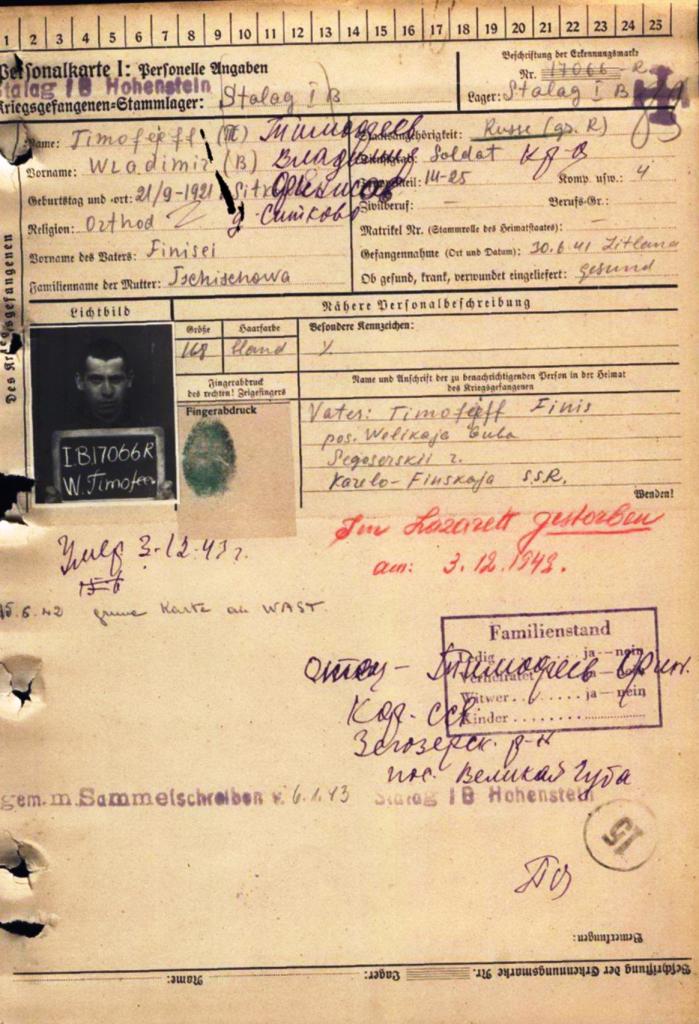 1 2 3 4 5 6 7 8 9 10 11 12 13 14 15 16 17 18 19 20 21 22 23 24 25
Personalkarte I: Personelle Angaben
Stalag IB Hohenstein
Kriegsgefangenen-Stammlager: Stalag I B
Beschriftung der Erkennungsmarke
Nr. 17066 R
Lager: Stalag I B
Des Kriegsgefangenen
Name: Timofejeff (Т) Тимофеев
Vorname: Wladimir (В) Владимир
Geburtstag und -ort: 21/9-1921
д. Ситково
Religion: Orthod
Vorname des Vaters: Finisei
Familienname der Mutter: Tschischowa
Staatsangehörigkeit: Russe (gr. R)
Dienstgrad: Soldat Кр-ц
Truppenteil: III-25 Komp. usw.: 4
Zivilberuf: — Berufs-Gr.: —
Matrikel Nr. (Stammrolle des Heimatstaates): —
Gefangennahme (Ort und Datum): 30.6.41 Zitlana
Ob gesund, krank, verwundet eingeliefert: gesund
Lichtbild
Nähere Personalbeschreibung
Größe
Haarfarbe
Besondere Kennzeichen:
168
bland
Fingerabdruck
des rechten! Zeigefingers
Fingerabdruck
Name und Anschrift der zu benachrichtigenden Person in der Heimat
des Kriegsgefangenen
Vater: Timofejeff Finis
pos. Welikaja Guba
Segoserskii r.
Karelo-Finskaja S.S.R.
Wenden!
I.B.17066R
W. Timofeew
Im Lazarett gestorben
am: 3.12.1942.
Умер 3-12-42 г.
15.6.42 grüne Karte an WAST.
Familienstand
Ledig ja—nein
Verheiratet ja—nein
Witwer ja—nein
Kinder
отец — Тимофеев Фин.
Кар. ССР
Зегозерск. р-н
пос. Великая Губа
gem. m. Sammelschreiben v. 6.1.43 Stalag IB Hohenstein
15
Bemerkungen:
Beschriftung der Erkennungsmarke Nr. Lager: Name: